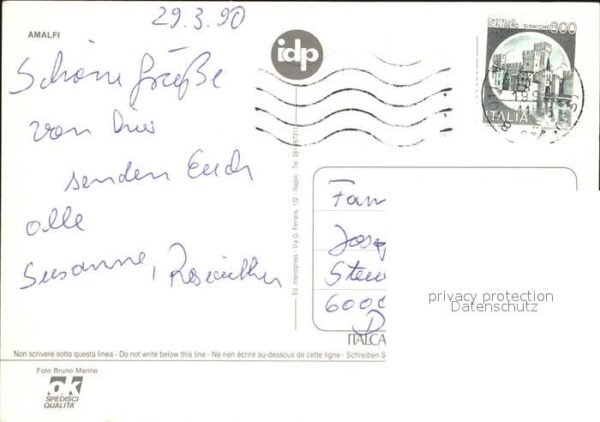 29.3.90
AMALFI
Schöne Grüße
von hier
senden Euch
alle
Susanne,
idp
CASTELLO
SCALIGERO SIRMIONE 600
ITALIA
Fam
Josep
600
D
privacy protection
Datenschutz
ITALCA
Ed. Interdipress - Via G. Ferraris, 132 - Napoli - Tel.
Non scrivere sotto questa linea - Do not write below this line - Ne rien écrire au-dessous de cette ligne - Schreiben S
Foto Bruno Marino
ok
SPEDISCI
QUALITÀ